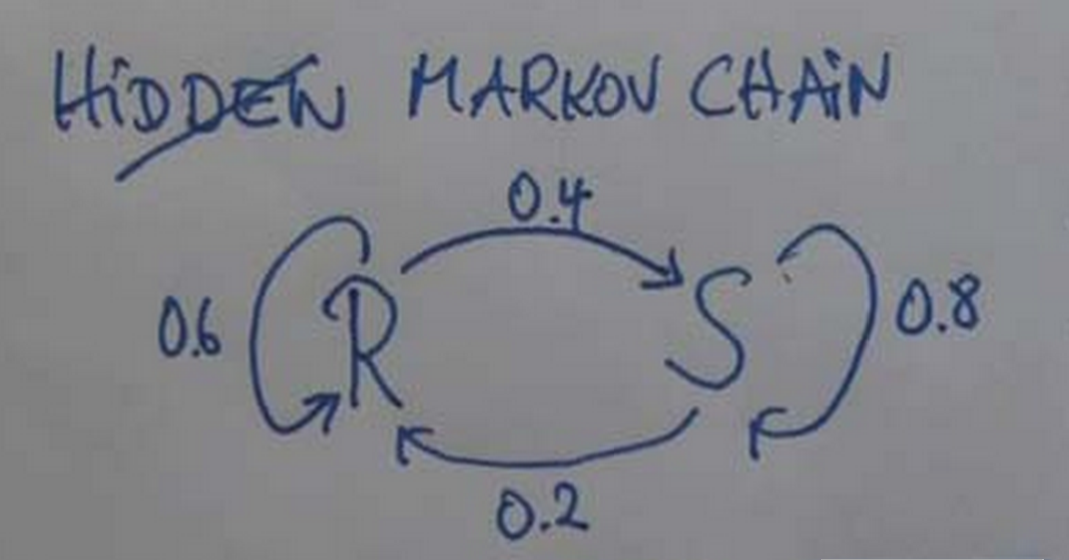 HiDDEN MARKOV CHAiN
0.4
0.6 R S 0.8
0.2